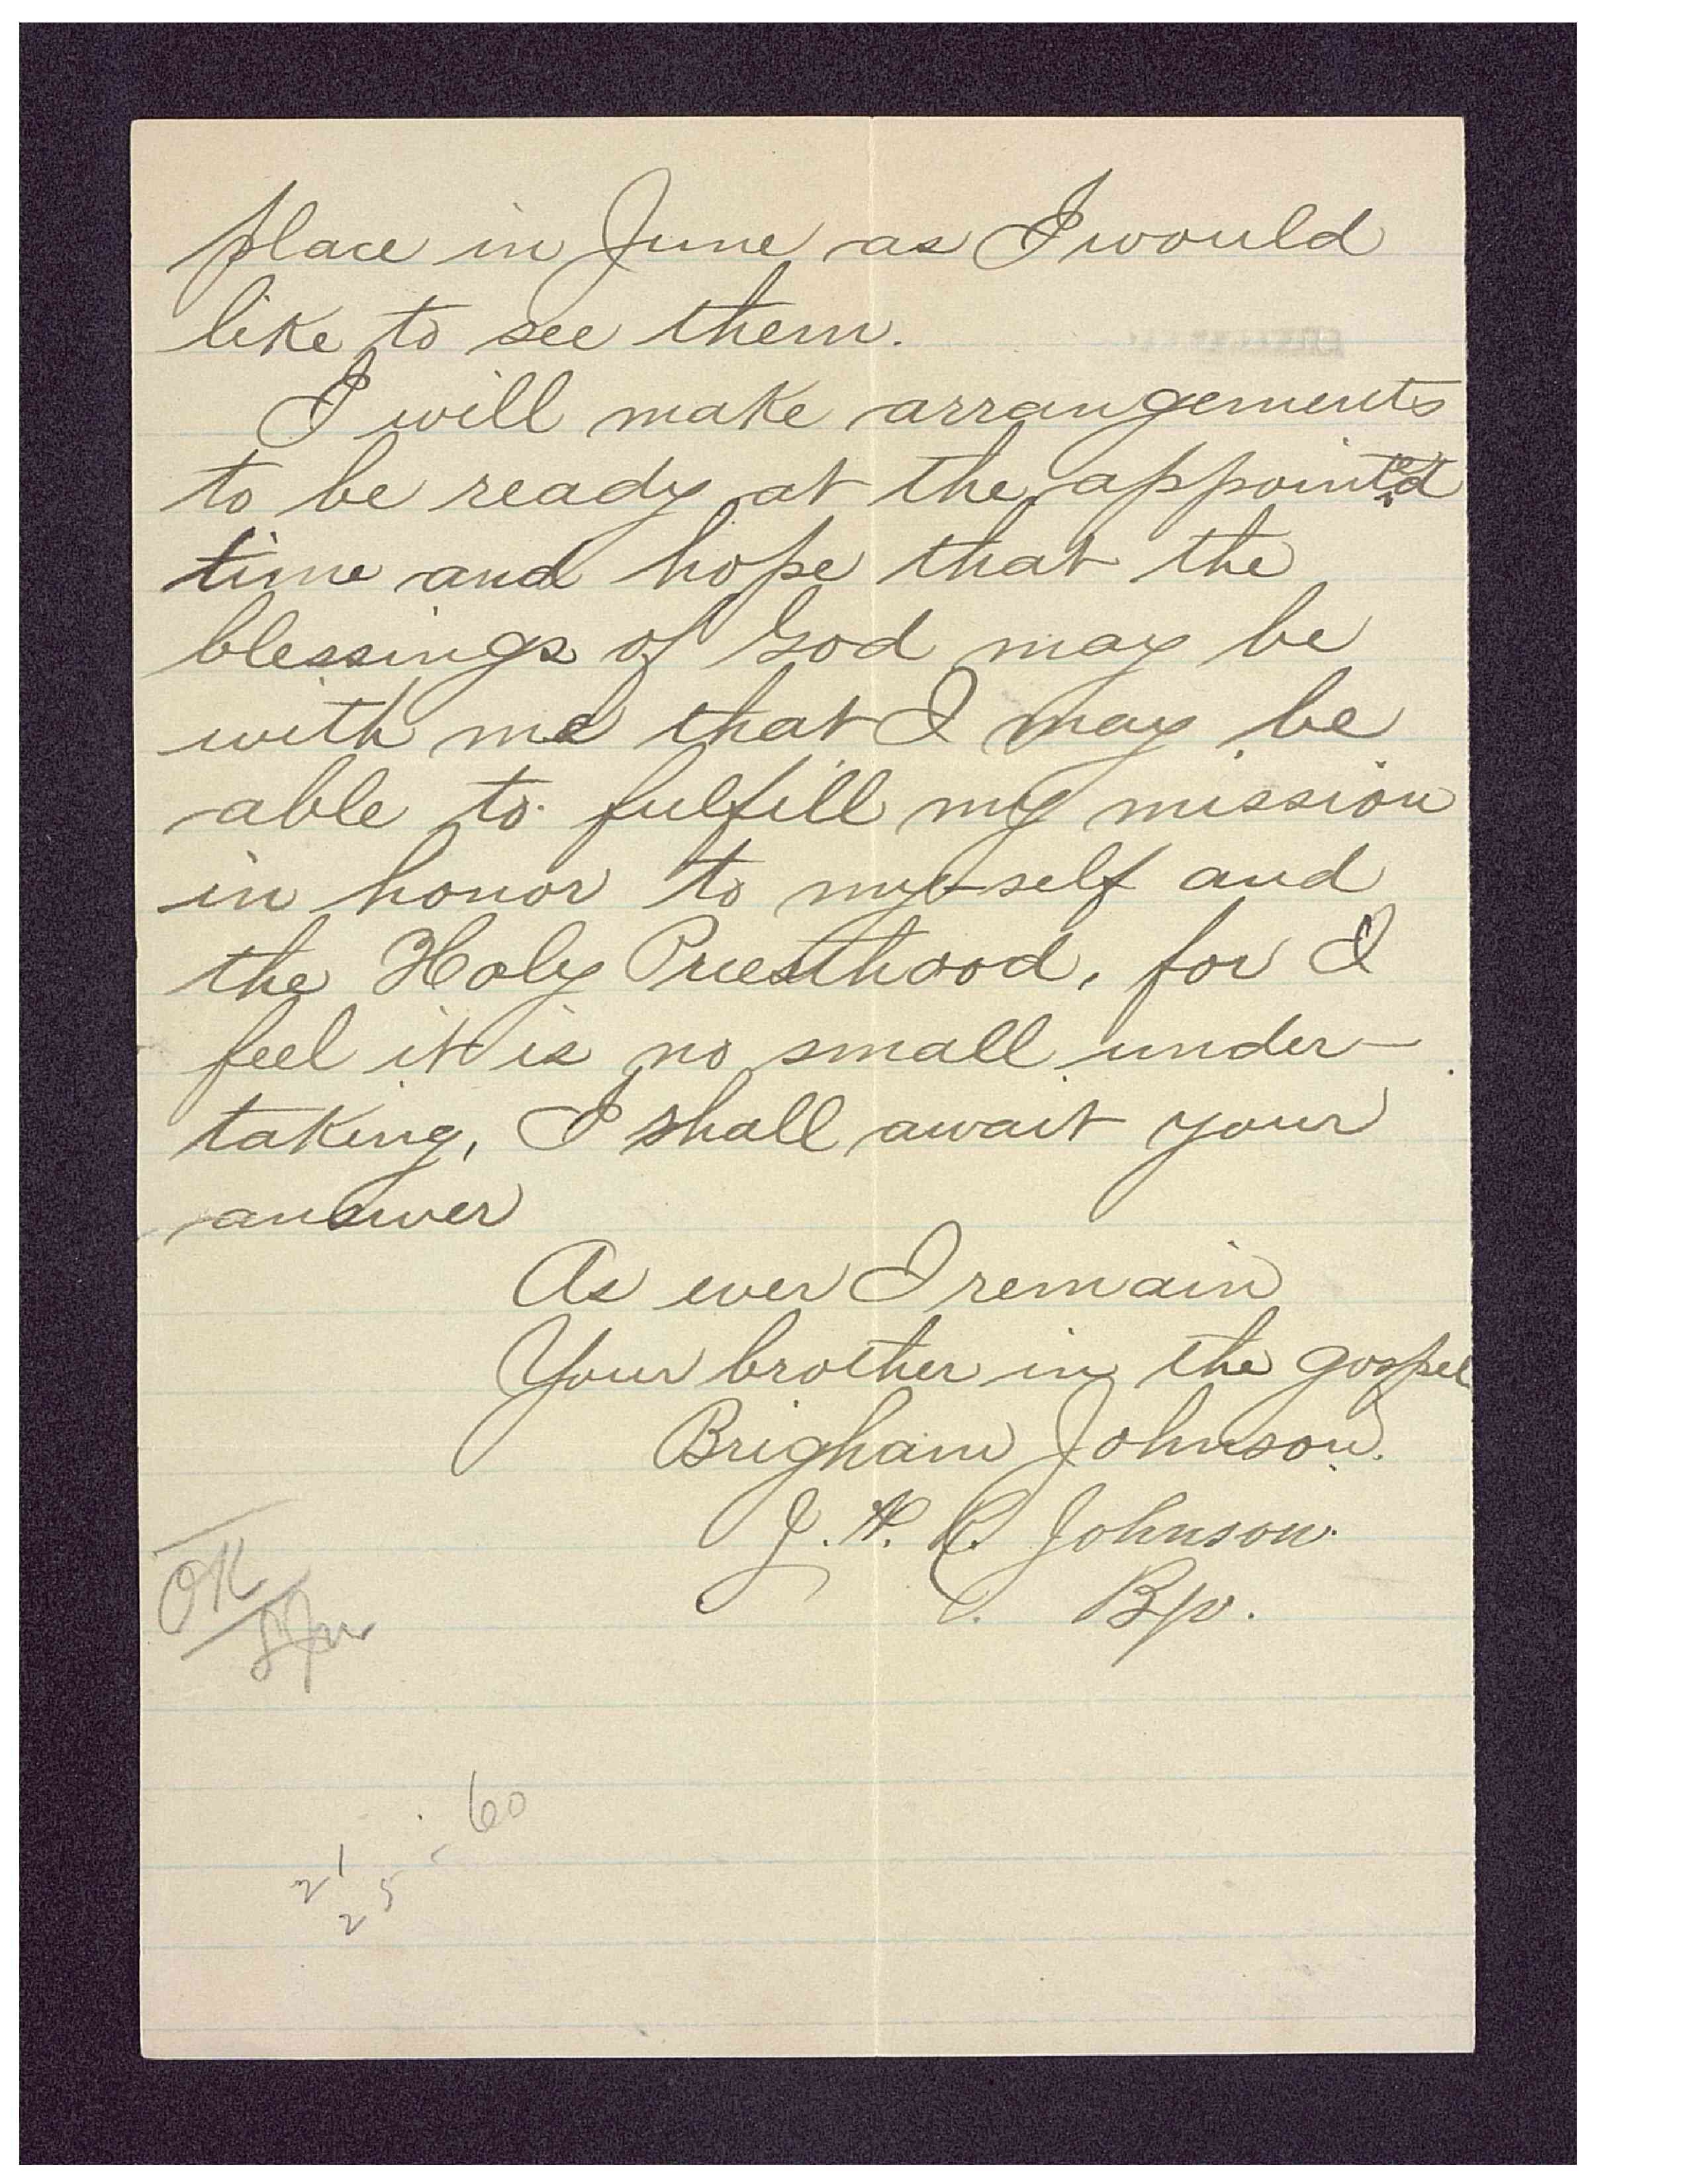 place in June as I would
like to see them.
I will make arrangements
to be ready at the appointed
time and hope that the
blessings of God may be
with me that I may be
able to fulfill my mission
in honor to my-self and
the Holy Priesthood, for I
feel it is no small under-
taking, I shall await your
answer
As ever I remain
Your brother in the gospel
Brigham Johnson.
J. H. C. Johnson.
Bp.
OK
60
21
25